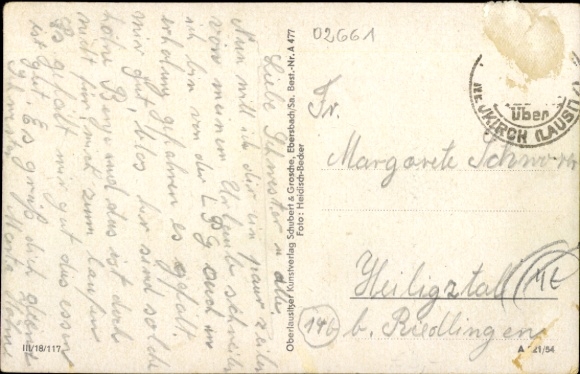 Liebe Schwester u alle
Nun will ich dir ein paar zeilen
von meinem Urlaub schreiben
ich bin von der LPG auch in
erholung gefahren es gefält
mir gut, blos hir sind solche
hohe Berge und das ist doch
nicht für mich zum laufen
Es gefält mir gut das essen
ist gut. Es grüß dich
Oberlausitzer Kunstverlag Schubert & Grosche, Ebersbach/Sa. Best.-Nr. A 477
Foto: Heidisch-Becker
02661
über
KIRCH (LAUSITZ)
Fr.
Margarete
Heiligztal
14b b. Riedlingen
III/18/117
A 21/54